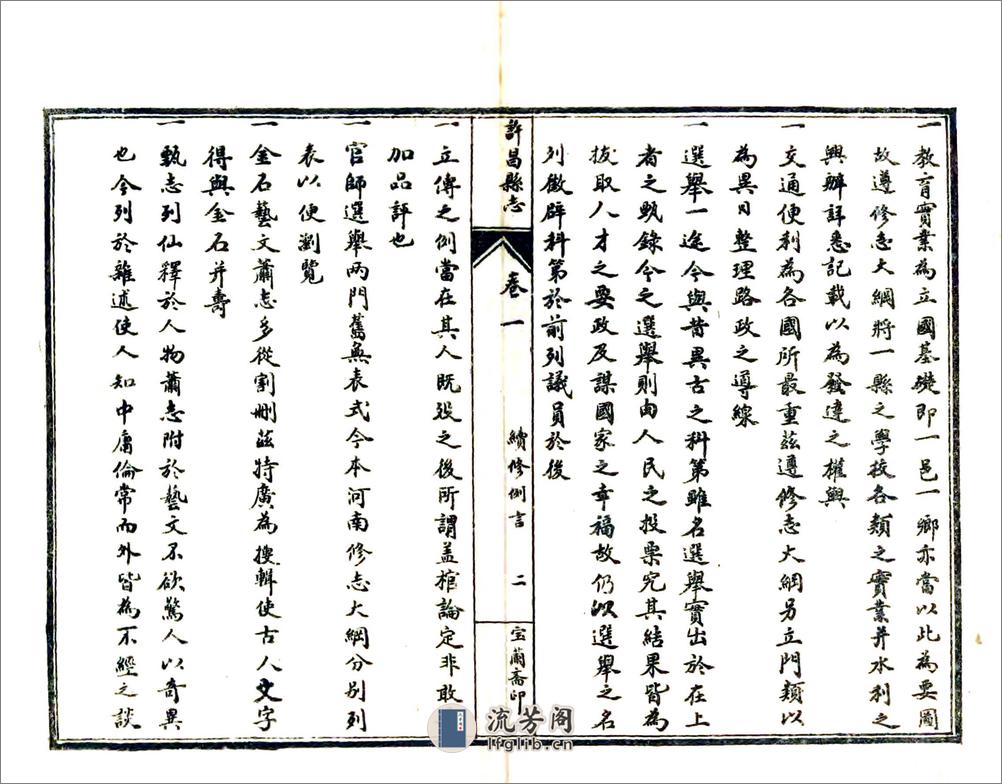 一教育實業為立國基礎即一邑一鄉亦當以此為要圖
故遵修志大綱將一縣之學校各類之實業并水利之
興辦詳悉記載以為發達之權輿
一交通便利為各國所最重茲遵修志大綱另立門類以
為異日整理路政之導線
一選舉一途今與昔異古之科第雖名選舉實出於在上
者之甄錄今之選舉則由人民之投票究其結果皆為
拔取人才之要政及謀國家之幸福故仍以選舉之名
列徵辟科第於前列議員於後
許昌縣志
卷一
續修例言
二
宝蘭斋印
一立傳之例當在其人既歿之後所謂盖棺論定非敢
加品評也
一官師選舉兩門舊無表式今本河南修志大綱分别列
表以便瀏覽
一金石藝文蕭志多從割刪茲特廣為搜輯使古人文字
得與金石并壽
一甄志列仙釋於人物蕭志附於藝文不欲驚人以奇異
也今列於雜述使人知中庸倫常而外皆為不經之談
流芳阁
lfglib.cn